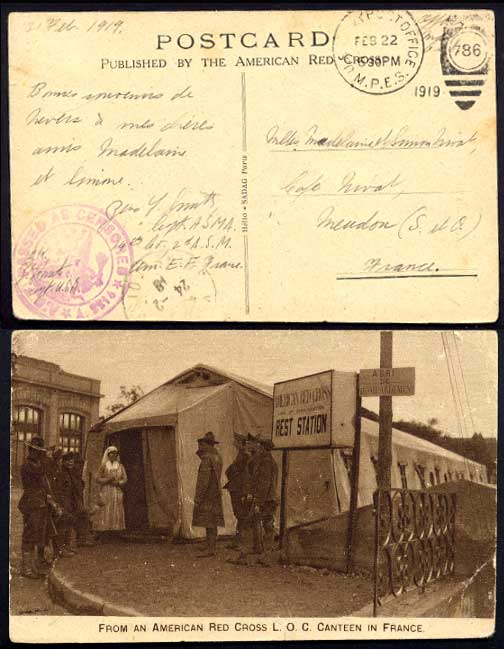 21 Feb. 1919.
POSTCARD
PUBLISHED BY THE AMERICAN RED CROSS
POST OFFICE
FEB 22
5 30 PM
M.P.E.S.
1919
786
Bonnes souvenirs de
Nevers à mes chères
amis Madelaine
et Simone.
Capt. A.S.M.A.
Am. E. F. France.
PASSED AS CENSORED
24 -2
19
Hélio - SADAG Paris
Mlles Madelaine et Simon Nivat,
Cafe Nivat,
Meudon (S. et O.)
France.
AMERICAN RED CROSS
REST STATION
ABRI
DE
BOMBARDEMENT
FROM AN AMERICAN RED CROSS L. O. C. CANTEEN IN FRANCE.